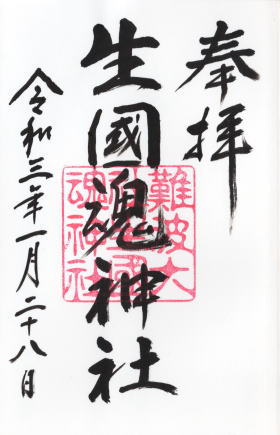 奉拝
生國魂神社
難波大
社生國
魂神社
令和三年一月二十八日